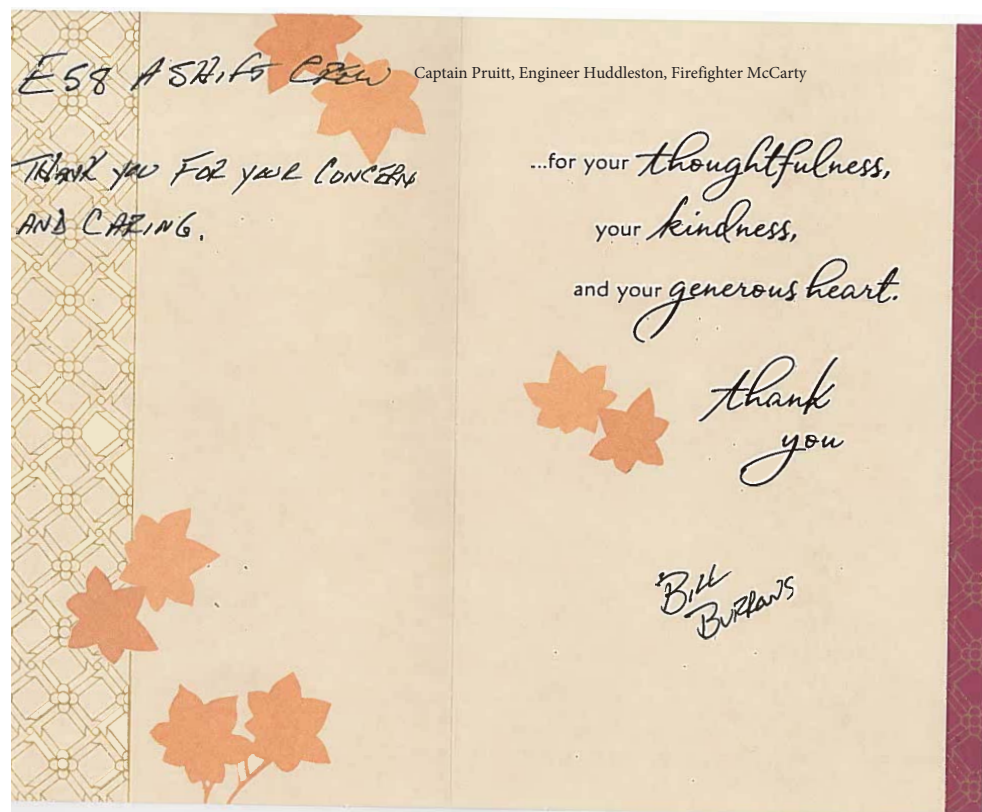 E58 A SHIFT CREW
Captain Pruitt, Engineer Huddleston, Firefighter McCarty
THANK YOU FOR YOUR CONCERN
AND CARING.
...for your thoughtfulness,
your kindness,
and your generous heart.
thank
you
BILL
BURROWS